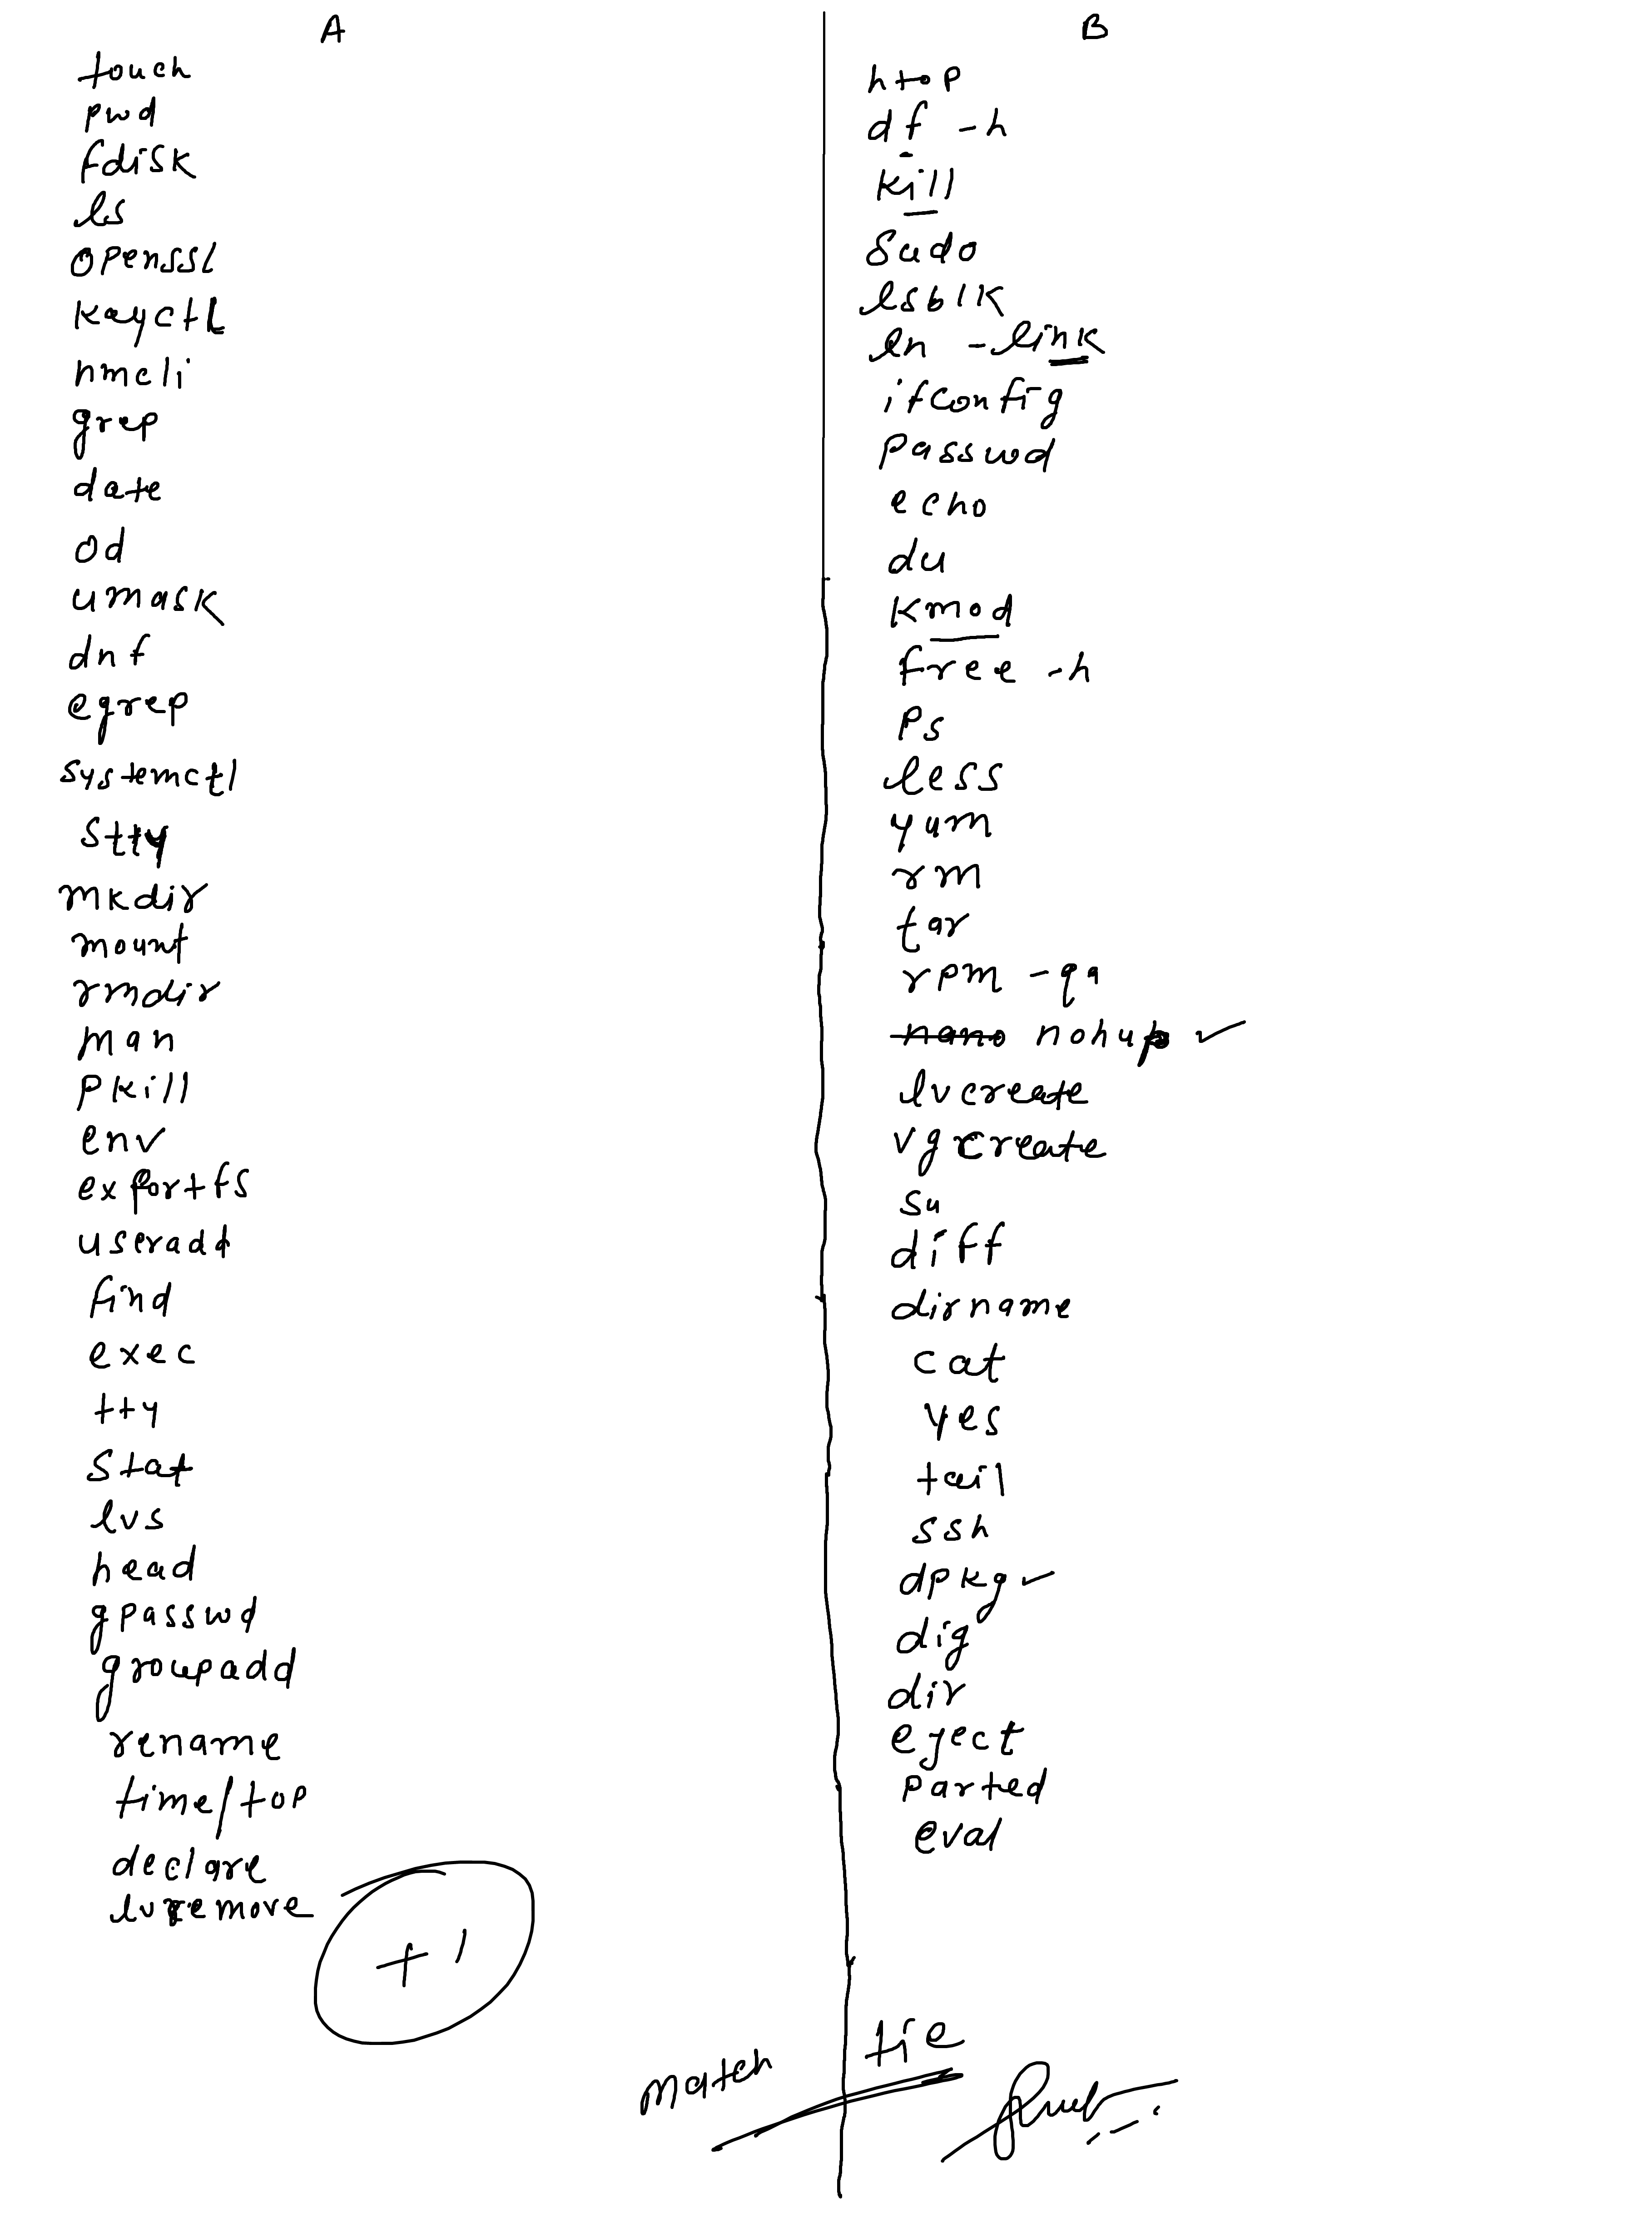 A
touch
pwd
fdisk
ls
openssl
kayctl
nmcli
grep
date
od
umask
dnf
egrep
systemctl
stty
mkdir
mount
rmdir
man
pkill
env
exportfs
useradd
find
exec
tty
stat
lvs
head
gpasswd
groupadd
rename
time/top
declare
lvremove
+1
B
htop
df -h
kill
sudo
lsblk
ln -link
ifconfig
passwd
echo
du
kmod
free -h
ps
less
yum
rm
tar
rpm -qa
nano nohup ✓
lvcreate
vgcreate
su
diff
dirname
cat
yes
tail
ssh
dpkg ✓
dig
dir
eject
parted
eval
match tie